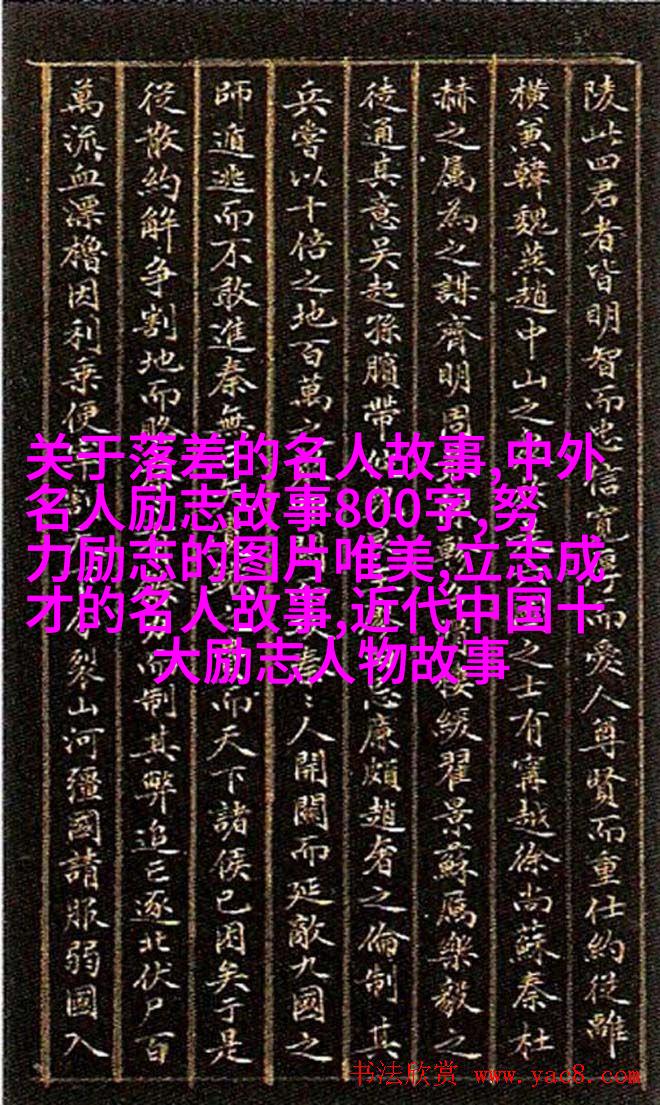 陵此四君者皆明智而忠信寬厚而愛人尊賢而重仕約從離
橫兼韓魏燕趙中山之之士有甯越徐尚蘇秦杜
赫之屬為之謀齊明周樓緩翟景蘇厲樂毅之
徒通其意吴起孫臏帶廉頗趙奢之倫制其
兵嘗以十倍之地百萬之秦人開關而延敵九國之
師遁逃而不敢進秦無而天下諸侯已困矣于是
從散約解爭割地而賂而制其弊追亡逐北伏尸百
萬流血漂櫓因利乘便裂山河彊國請服弱國入
关于落差的名人故事,中外
名人励志故事800字,努
力励志的图片唯美,立志成
才的名人故事,近代中国十
大励志人物故事
书法欣赏 www.yac8.com